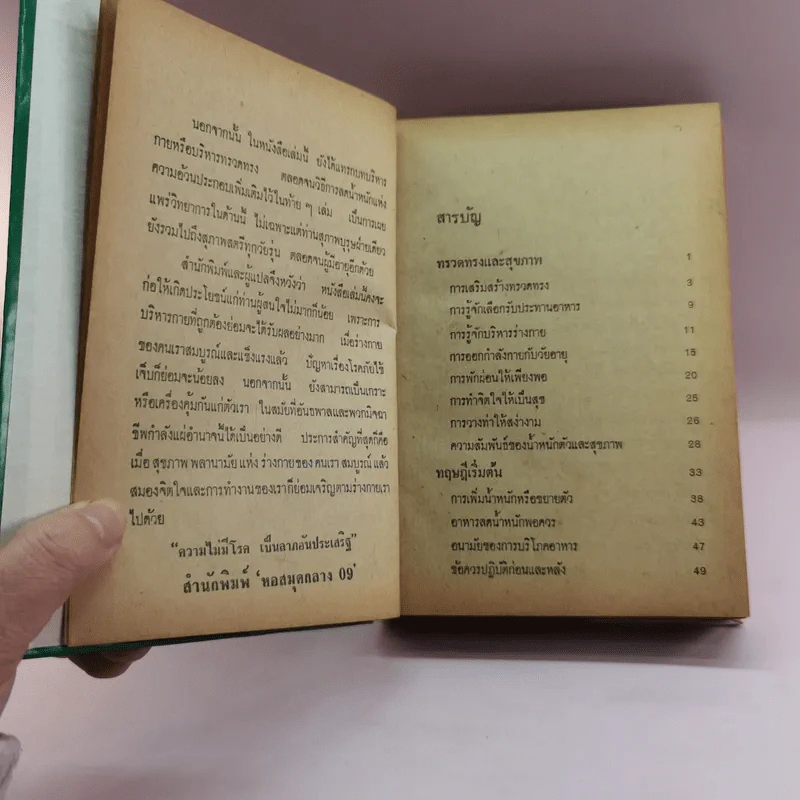 นอกจากนั้น ในหนังสือเล่มนี้ ยังได้แทรกบทบริหาร
กายหรือบริหารทรวดทรง ตลอดจนวิธีการลดน้ำหนักแห่ง
ความอ้วนประกอบเพิ่มเติมไว้ในท้าย ๆ เล่ม เป็นการเผย
แพร่วิทยาการในด้านนี้ ไม่เฉพาะแต่ท่านสุภาพบุรุษฝ่ายเดียว
ยังรวมไปถึงสุภาพสตรีทุกวัยรุ่น ตลอดจนผู้มีอายุอีกด้วย
สำนักพิมพ์และผู้แปลจึงหวังว่า หนังสือเล่มนี้คงจะ
ก่อให้เกิดประโยชน์แก่ท่านผู้สนใจไม่มากก็น้อย เพราะการ
บริหารกายที่ถูกต้องย่อมจะได้รับผลอย่างมาก เมื่อร่างกาย
ของคนเราสมบูรณ์และแข็งแรงแล้ว ปัญหาเรื่องโรคภัยไข้
เจ็บก็ย่อมจะน้อยลง นอกจากนั้น ยังสามารถเป็นเกราะ
หรือเครื่องคุ้มกันแก่ตัวเรา ในสมัยที่อันธพาลและพวกมิจฉา
ชีพกำลังแผ่อำนาจนี้ได้เป็นอย่างดี ประการสำคัญที่สุดก็คือ
เมื่อ สุขภาพ พลานามัย แห่ง ร่างกายของ คนเรา สมบูรณ์ แล้ว
สมองจิตใจและการทำงานของเราก็ย่อมเจริญตามร่างกายเรา
ไปด้วย
“ความไม่มีโรค เป็นลาภอันประเสริฐ”
สำนักพิมพ์ ‘หอสมุดกลาง 09’
สารบัญ
ทรวดทรงและสุขภาพ 1
การเสริมสร้างทรวดทรง 3
การรู้จักเลือกรับประทานอาหาร 9
การรู้จักบริหารร่างกาย 11
การออกกำลังกายกับวัยอายุ 15
การพักผ่อนให้เพียงพอ 20
การทำจิตใจให้เป็นสุข 25
การวางท่าให้สง่างาม 26
ความสัมพันธ์ของน้ำหนักตัวและสุขภาพ 28
ทฤษฎีเริ่มต้น 33
การเพิ่มน้ำหนักหรือขยายตัว 38
อาหารลดน้ำหนักพอควร 43
อนามัยของการบริโภคอาหาร 47
ข้อควรปฏิบัติก่อนและหลัง 49